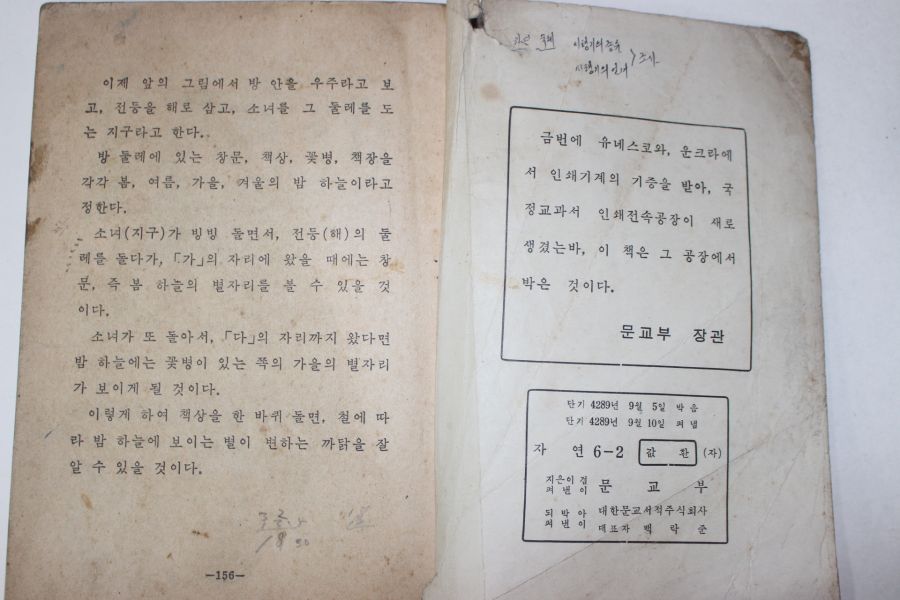 이제 앞의 그림에서 방 안을 우주라고 보
고, 전등을 해로 삼고, 소녀를 그 둘레를 도
는 지구라고 한다.
방 둘레에 있는 창문, 책상, 꽃병, 책장을
각각 봄, 여름, 가을, 겨울의 밤 하늘이라고
정한다.
소녀(지구)가 빙빙 돌면서, 전등(해)의 둘
레를 돌다가, 「가」의 자리에 왔을 때에는 창
문, 즉 봄 하늘의 별자리를 볼 수 있을 것
이다.
소녀가 또 돌아서, 「다」의 자리까지 왔다면
밤 하늘에는 꽃병이 있는 쪽의 가을의 별자리
가 보이게 될 것이다.
이렇게 하여 책상을 한 바퀴 돌면, 철에 따
라 밤 하늘에 보이는 별이 변하는 까닭을 잘
알 수 있을 것이다.
—156—
금번에 유네스코와, 운크라에
서 인쇄기계의 기증을 받아, 국
정교과서 인쇄전속공장이 새로
생겼는바, 이 책은 그 공장에서
박은 것이다.
문교부 장관
단기 4289년 9월 5일 박음
단기 4289년 9월 10일 펴냄
자 연 6-2 값 환 (자)
지은이 겸 펴낸이 문 교 부
되박아 펴낸이 대한문교서적주식회사
대표자 백 락 준